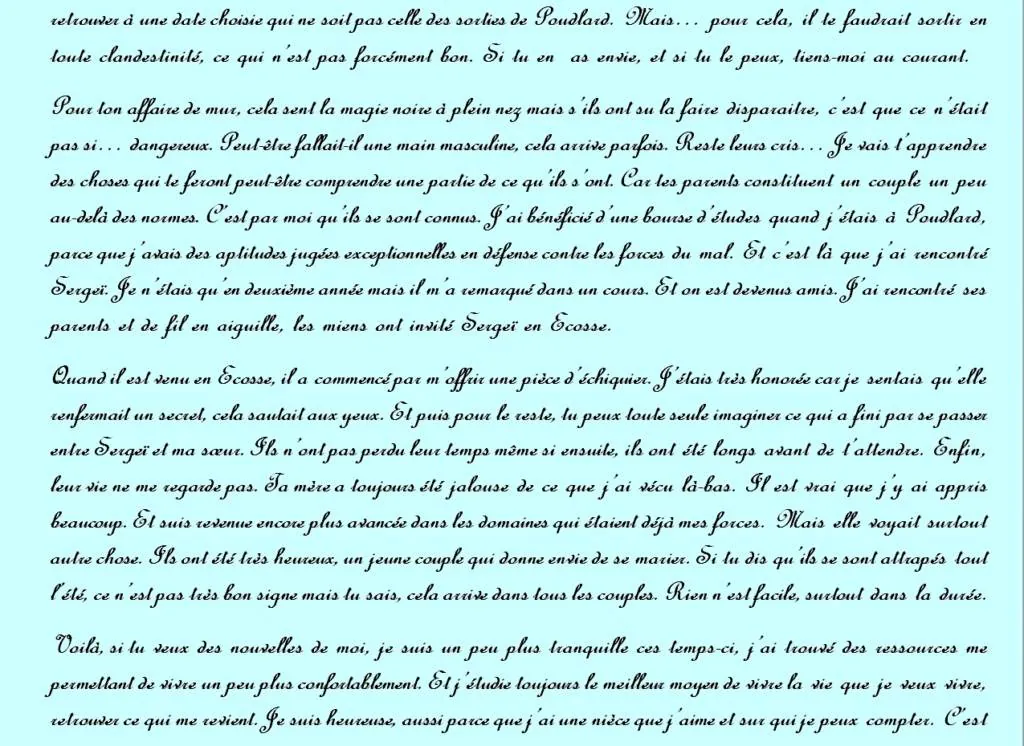 retrouver à une date choisie qui ne soit pas celle des sorties de Poudlard. Mais... pour cela, il te faudrait sortir en
toute clandestinité, ce qui n'est pas forcément bon. Si tu en as envie, et si tu le peux, tiens-moi au courant.
Pour ton affaire de mur, cela sent la magie noire à plein nez mais s'ils ont su la faire disparaitre, c'est que ce n'était
pas si... dangereux. Peut-être fallait-il une main masculine, cela arrive parfois. Reste leurs cris... Je vais t'apprendre
des choses qui te feront peut-être comprendre une partie de ce qu'ils s'ont. Car tes parents constituent un couple un peu
au-delà des normes. C'est par moi qu'ils se sont connus. J'ai bénéficié d'une bourse d'études quand j'étais à Poudlard,
parce que j'avais des aptitudes jugées exceptionnelles en défense contre les forces du mal. Et c'est là que j'ai rencontré
Sergeï. Je n'étais qu'en deuxième année mais il m'a remarqué dans un cours. Et on est devenus amis. J'ai rencontré ses
parents et de fil en aiguille, les miens ont invité Sergeï en Ecosse.
Quand il est venu en Ecosse, il a commencé par m'offrir une pièce d'échiquier. J'étais très honorée car je sentais qu'elle
renfermait un secret, cela sautait aux yeux. Et puis pour le reste, tu peux toute seule imaginer ce qui a fini par se passer
entre Sergeï et ma sœur. Ils n'ont pas perdu leur temps même si ensuite, ils ont été longs avant de t'attendre. Enfin,
leur vie ne me regarde pas. Ta mère a toujours été jalouse de ce que j'ai vécu là-bas. Il est vrai que j'y ai appris
beaucoup. Et suis revenue encore plus avancée dans les domaines qui étaient déjà mes forces. Mais elle voyait surtout
autre chose. Ils ont été très heureux, un jeune couple qui donne envie de se marier. Si tu dis qu'ils se sont attrapés tout
l'été, ce n'est pas très bon signe mais tu sais, cela arrive dans tous les couples. Rien n'est facile, surtout dans la durée.
Voilà, si tu veux des nouvelles de moi, je suis un peu plus tranquille ces temps-ci, j'ai trouvé des ressources me
permettant de vivre un peu plus confortablement. Et j'étudie toujours le meilleur moyen de vivre la vie que je veux vivre,
retrouver ce qui me revient. Je suis heureuse, aussi parce que j'ai une nièce que j'aime et sur qui je peux compter. C'est